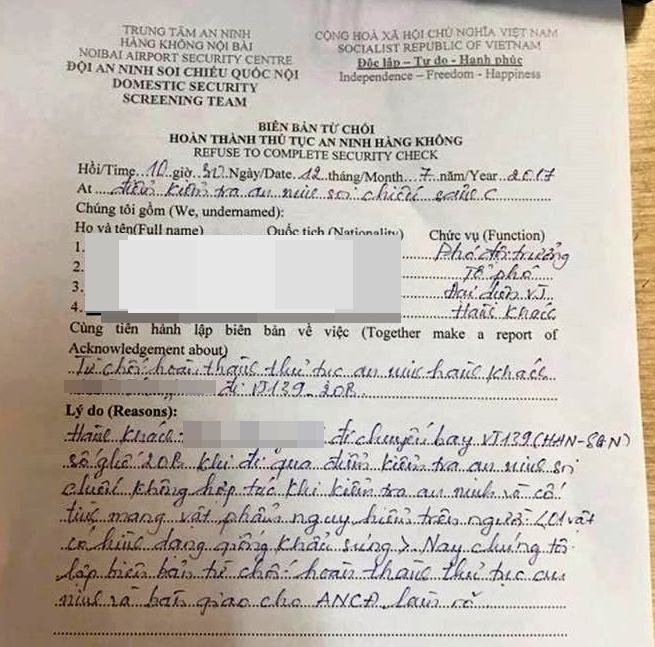 TRUNG TÂM AN NINH
HÀNG KHÔNG NỘI BÀI
NOIBAI AIRPORT SECURITY CENTRE
ĐỘI AN NINH SOI CHIẾU QUỐC NỘI
DOMESTIC SECURITY
SCREENING TEAM
CỘNG HOÀ XÃ HỘI CHỦ NGHĨA VIỆT NAM
SOCIALIST REPUBLIC OF VIETNAM
Độc lập – Tự do - Hạnh phúc
Independence – Freedom - Happiness
BIÊN BẢN TỪ CHỐI
HOÀN THÀNH THỦ TỤC AN NINH HÀNG KHÔNG
REFUSE TO COMPLETE SECURITY CHECK
Hồi/Time 10 giờ 30 Ngày/Date 12 tháng/Month 7 năm/Year 2017
At điểm kiểm tra an ninh soi chiếu sảnh C
Chúng tôi gồm (We, undernamed):
Họ và tên(Full name) Quốc tịch (Nationality) Chức vụ (Function)
1. Phó đội trưởng
2. Tổ phó
3. Đại diện VJ
4. Hành khách
Cùng tiến hành lập biên bản về việc (Together make a report of
Acknowledgement about)
Từ chối hoàn thành thủ tục an ninh hành khách
đi VJ139
Lý do (Reasons):
Hành khách: đi chuyến bay VJ139 (HAN-SGN)
số ghế khi đi qua điểm kiểm tra an ninh soi
chiếu không hợp tác khi kiểm tra an ninh và cố
tình mang vật phẩm nguy hiểm trên người (01 vật
có hình dạng giống khẩu súng). Nay chúng tôi
lập biên bản từ chối hoàn thành thủ tục an
ninh và bàn giao cho ANCĐ làm rõ.